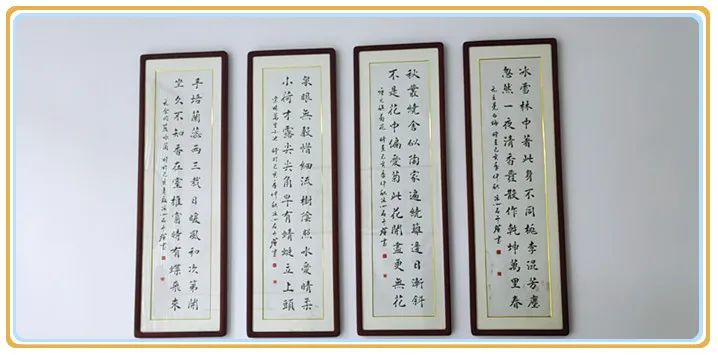 冰雪林中著此身不同桃李混芳塵
忽然一夜清香發散作乾坤萬里春
元王冕白梅
秋叢繞舍似陶家遍繞籬邊日漸斜
不是花中偏愛菊此花開盡更無花
唐元稹菊花
泉眼無聲惜細流樹陰照水愛晴柔
小荷才露尖尖角早有蜻蜓立上頭
宋楊萬里小池
手培蘭蕊兩三栽日暖風和次第開
坐久不知香在室推窗時有蝶飛來